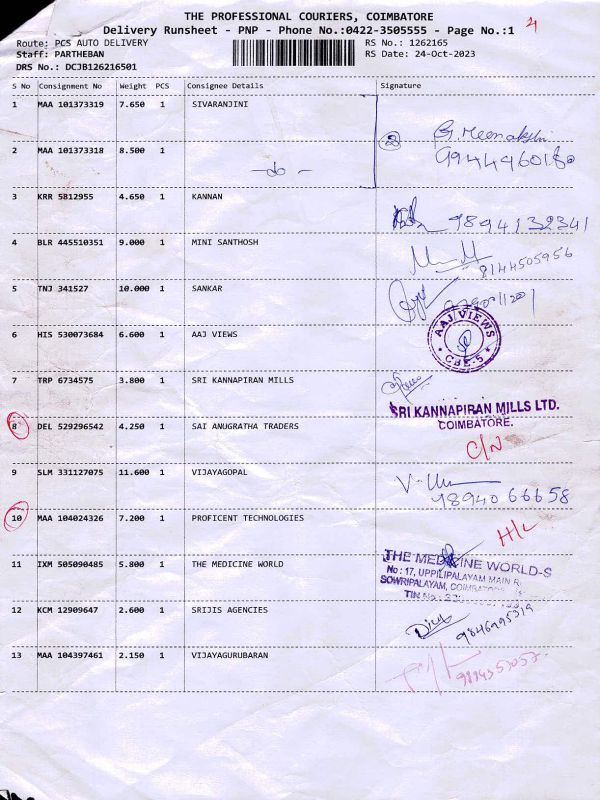 THE PROFESSIONAL COURIERS, COIMBATORE
Delivery Runsheet - PNP - Phone No.:0422-3505555 - Page No.:1 4
Route: PCS AUTO DELIVERY RS No.: 1262165
Staff: PARTHEBAN RS Date: 24-Oct-2023
DRS No.: DCJB126216501
S No Consignment No Weight PCS Consignee Details Signature
1 MAA 101373319 7.650 1 SIVARANJINI
2 G. Meenakshi
2 MAA 101373318 8.500 1
9944460180
-do-
3 KRR 5812955 4.650 1 KANNAN
9894132341
4 BLR 445510351 9.000 1 MINI SANTHOSH
8144505956
5 TNJ 341527 10.000 1 SANKAR
6 HIS 530073684 6.600 1 AAJ VIEWS
AAJ VIEWS
CBE-5
7 TRP 6734575 3.800 1 SRI KANNAPIRAN MILLS
SRI KANNAPIRAN MILLS LTD.
COIMBATORE.
8 DEL 529296542 4.250 1 SAI ANUGRATHA TRADERS
C/N
9 SLM 331127075 11.600 1 VIJAYAGOPAL
9894066658
10 MAA 104024326 7.200 1 PROFICENT TECHNOLOGIES
H/L
11 IXM 505090485 5.800 1 THE MEDICINE WORLD
THE MEDICINE WORLD-S
No: 17, UPPILIPALAYAM MAIN R
SOWRIPALAYAM,
TIN No.:
12 KCM 12909647 2.600 1 SRIJIS AGENCIES
9846995319
13 MAA 104397461 2.150 1 VIJAYAGURUBARAN